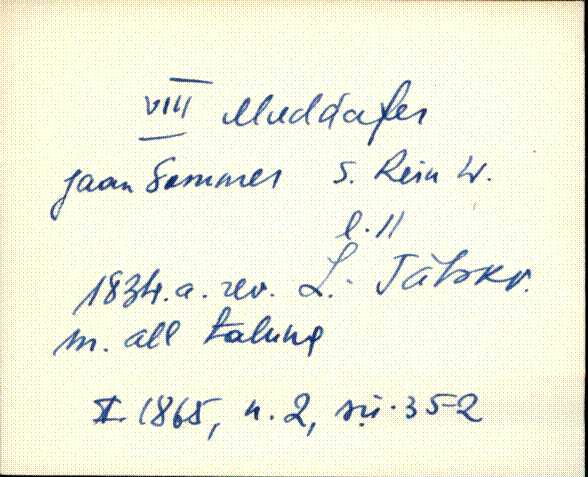 VIII Muddafer
Jaan Sommer s. Rein W.
l. 11
1834. a. rev. L. Jäbskr.
m. all talung
X. 1865, n. 2, su. 352